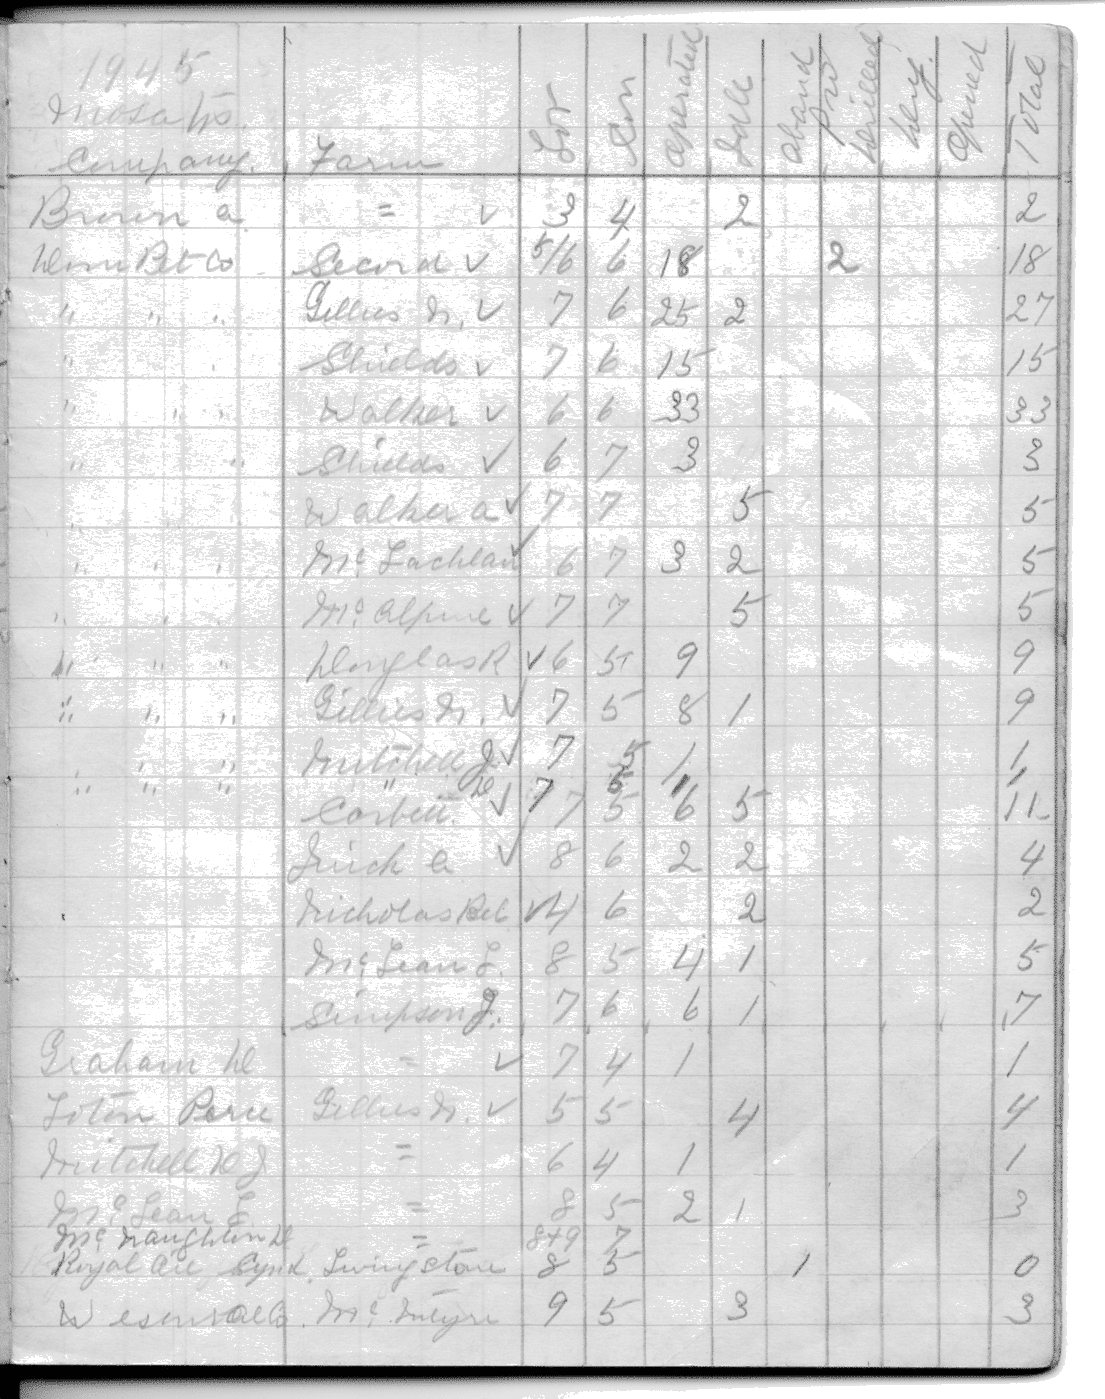 1945
Mosa tp.
Company. Farm Lot Con Operated Idle Aband Pro Drilled Dry. Opened Total
Brown A. = ✓ 3 4 2 2
Dom Pet Co Secord ✓ 5/6 6 18 2 18
" " " Gillies N. ✓ 7 6 25 2 27
" " Shields ✓ 7 6 15 15
" " " Walker ✓ 6 6 33 33
" " Shields ✓ 6 7 3 3
" Walker A ✓ 7 7 5 5
" " " Mc Lachlan ✓ 6 7 3 2 5
" " " Mc Alpine ✓ 7 7 5 5
" " " Douglas R ✓ 6 5 9 9
" " " Gillies N. ✓ 7 5 8 1 9
" " Mitchell J ✓ 7 5 1 1
" " " " D 7 5 1 1
Corbett. ✓ 7 5 6 5 11
A ✓ 8 6 2 2 4
Nicholas Rob ✓ 4 6 2 2
Mc Lean L. 8 5 4 1 5
Simpson J. 7 6 6 1 7
Graham D = ✓ 7 4 1 1
Gillies N. ✓ 5 5 4 4
Mitchell D J = 6 4 1 1
Mc Lean L. = 8 5 2 1 3
Mc Naughton D = 8+9 7
Royal Synd. Livingstone 8 5 1 0
Mc Intyre 9 5 3 3